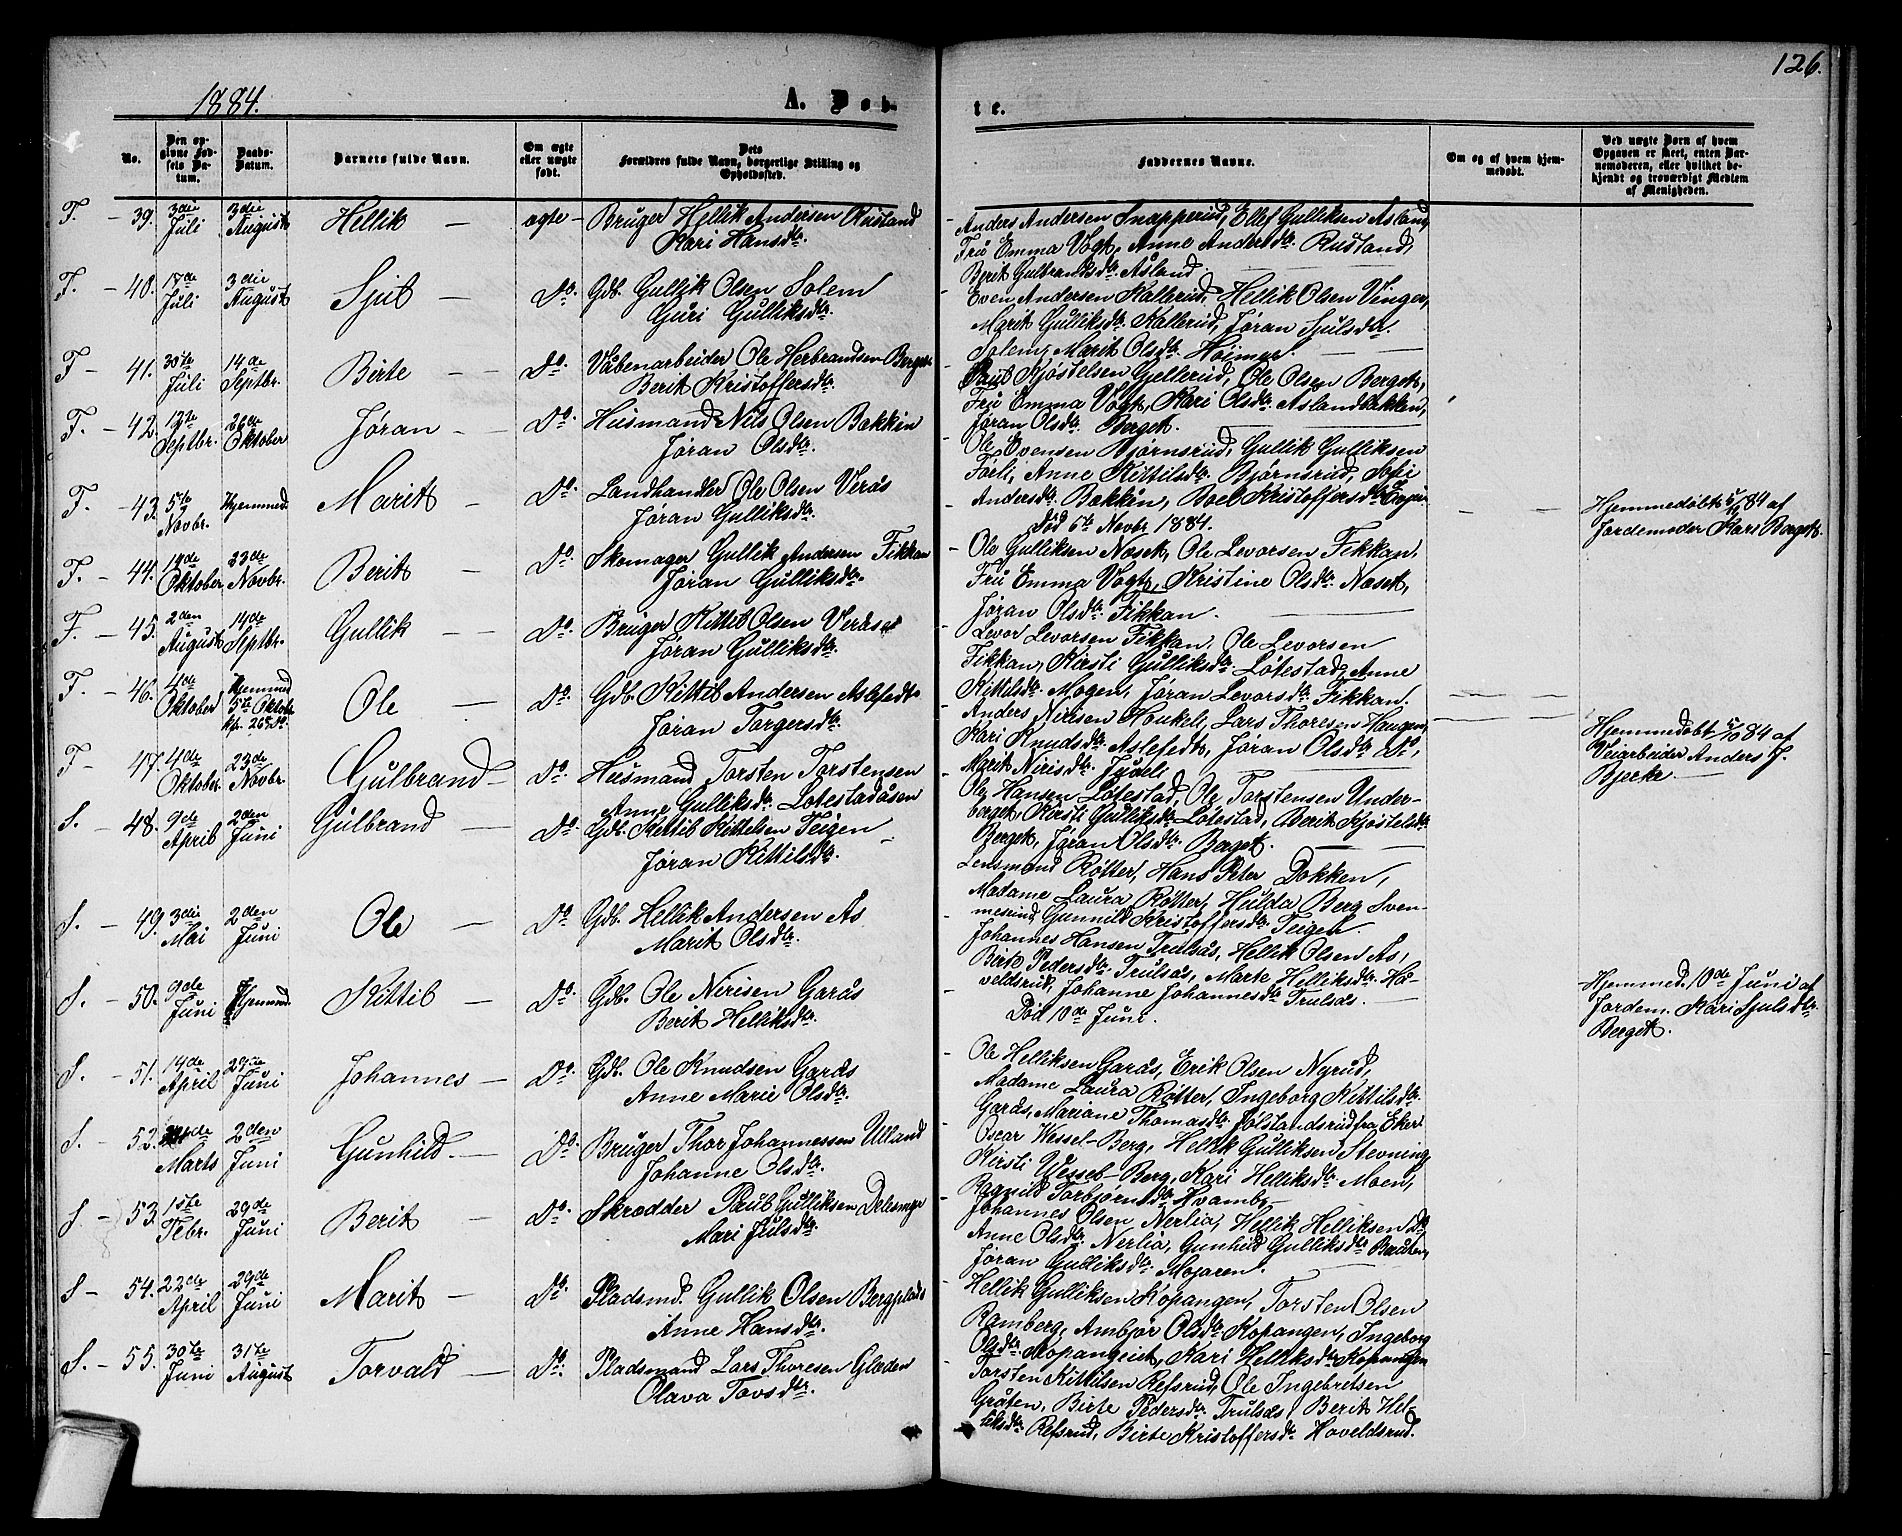 126.
1884.
A. Døb-
te.
No.
Den op-
givne Fød-
sels Da-
tum.
Daabs-
Datum.
Barnets fulde Navn.
Om ægte
eller uægte
født.
Dets
Forældres fulde Navn, borgerlige Stilling og
Opholdssted.
Faddernes Navne.
Om og af hvem hjem-
medøbt.
Ved uægte Børn af hvem
Opgaven er skeet, enten Bar-
nemoderen, eller hvilket be-
kjendt og troværdigt Medlem
af Menigheden.
F. - 39. 3die Juli 3die August Hellik - ægte - Bruger Hellik Andersen Rustand
Kari Hansdtr.
Anders Andersen Snapperud, Ellef Gulliksen Åsland,
Fru Emma Vogt, Anne Andersdtr. Rustand,
Berit Gulbrandsdtr. Åsland
F. - 40. 17de Juli 3die August Sjul - Do. Gdb. Gullik Olsen Solem
Guri Gulliksdtr.
Even Andersen Kallerud, Hellik Olsen Vinger,
Marit Gulliksdtr. Kallerud, Jøran Sjulsdtr.
Solem, Marit Olsdtr. Høimyr.
F - 41. 30te Juli 14de Septbr. Birte - Do. Våbenarbeider Ole Herbrandsen Berget
Berit Kristoffersdtr.
Paul Kjøstelsen Gellerud, Ole Olsen Berget,
Fru Emma Vogt, Kari Olsdtr. Åslandbakken,
Jøran Olsdtr. Berget.
F. - 42. Septbr. 26de Oktober Jøran - Do. Husmand Nils Olsen Bakkin
Jøran Olsdtr.
Ole Evensen Bjørnsrud, Gullik Gulliksen
Foerli, Anne Kittilsdtr. Bjørnsrud, Sofi
Andersdtr. Bakkin, Boel Kristoffersdtr.
F. - 43. 5te Novbr. Hjemmed. Marit - Do. Landhandler Ole Olsen Verås
Jøran Gulliksdtr.
Død 6te Novbr 1884.
Hjemmedøbt 84 af
Jordemoder Kari Berget.
F. - 44. Oktober 23de Novbr. Berit - Do. Skomager Gullik Andersen Fikkan
Jøran Gulliksdtr.
Ole Gulliksen Næset, Ole Levorsen Fikkan,
Fru Emma Vogt, Kristine Olsdtr. Næset,
Jøran Olsdtr. Fikkan.
F. - 45. 2den August 14de Septbr. Gullik - Do. Bruger Kittil Olsen Verås
Jøran Gulliksdtr.
Levor Levorsen Fikkan, Ole Levorsen
Fikkan, Kirsti Gulliksdtr. Løtestad, Anne
Kittilsdtr. Mogen, Jøran Levorsdtr. Fikkan.
F. - 46. 4de Oktober Hjemmed 5te Oktobr Ole - Do. Gdb. Kittil Andersen Aslefedt
Jøran Torgersdtr.
Anders Nirisen Houkeli, Lars Thoresen Haugen,
Kari Knudsdtr. Aslefedt, Jøran Olsdtr. Do,
Marit Nirisdtr.
Hjemmedøbt 84 af
Veiarbeider Anders J.
Bjerke
F - 47. 4de Oktober. 23de Novbr. Gulbrand - Do. Husmand Torsten Torstensen
Anne Gulliksdtr. Løtestadåsen
Ole Hansen Løtestad, Ole Torstensen Under-
berget, Kirsti Gulliksdtr. Løtestad, Berit Kjøstelsdtr.
Berget, Jøran Olsdtr. Berget.
S. - 48. 9de April 2den Juni Gulbrand - Do. Gdb. Kittil Kittelsen Teigen
Jøran Kittilsdtr.
Lensmand Røtter, Hans Peter Dokken,
Madame Laura Røtter, Hulda Berg Sven-
mesrud, Gunnild Kristoffersdtr. Teigen
S. - 49. 3die Mai 2den Juni Ole - Do. Gdb. Hellik Andersen Ås
Marit Olsdtr.
Johannes Hansen Trulsås, Hellik Olsen Ås,
Birte Pedersdtr. Trulsås, Marte Helliksdtr. Ho-
veldsrud, Johanne Johannesdtr. Trulsås.
S. - 50. 9de Juni Hjemmed. Kittil - Do. Gdb. Ole Nirisen Garås
Berit Helliksdtr.
Død 10de Juni.
Hjemmed. 10de Juni af
Jordem. Kari Sjulsdtr.
Berget.
S. - 51. 14de April 29de Juni Johannes - Do. Gdb. Ole Knudsen Garås
Anne Marie Olsdtr.
Ole Helliksen Garås, Erik Olsen Nyrud,
Madame Laura Røtter, Ingeborg Kittilsdtr.
Garås, Mariane Thomasdtr. Jolstandsrud fra Eker
S. - 52. Marts 2den Juni Gunhild. - Do. Bruger Thor Johannessen Ulland
Johanne Olsdtr.
Oscar Wessel-Berg, Hellik Gulliksen Stevning,
Kirsti Wessel-Berg, Kari Helliksdtr. Moen,
Ragnild Torbjørnsdtr. Hvamb
S - 53. 1ste Febr. 29de Juni Berit - Do. Skrædder Paul Gulliksen Delesmyr
Mari Julsdtr.
Johannes Olsen Nerlia, Hellik Helliksen
Anne Olsdtr. Nerlia, Gunhild Gulliksdtr. Bråten,
Jøran Gulliksdtr. Mojaren.
S - 54. 22de April 29de Juni Marit - Do. Pladsmd. Gullik Olsen Bergplads
Anne Hansdtr.
Hellik Gulliksen Kopangen, Torsten Olsen
Ramberg, Ambjør Olsdtr. Kopangen, Ingeborg
Olsdtr. Kopangen, Kari Helliksdtr. Kopangen
S. - 55. 30te Juni 31te August Torvald - Do. Pladsmand Lars Thoresen Gloden
Olava Tovsdtr.
Torsten Kittilsen Refsrud, Ole Ingebretsen
Gråten, Birte Pedersdtr. Trulsås, Berit Hel-
liksdtr. Refsrud, Birte Kristoffersdtr. Hoveldsrud.